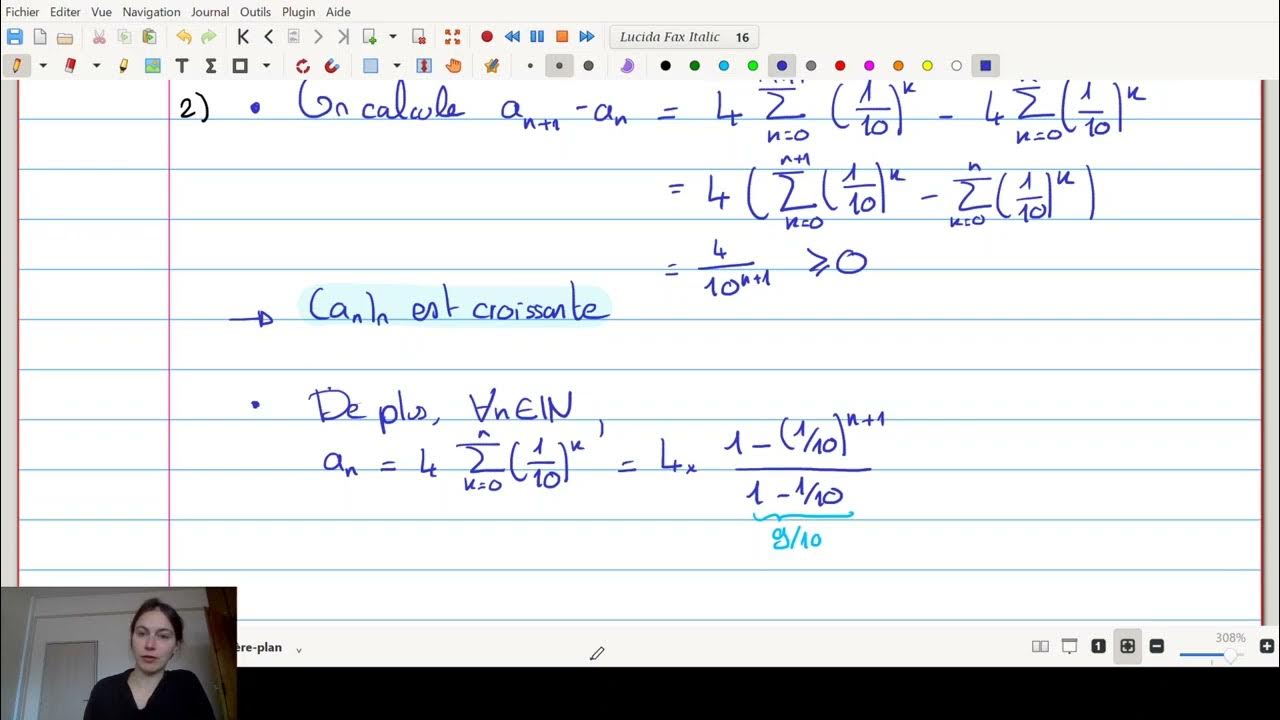 Fichier Editer Vue Navigation Journal Outils Plugin Aide
Lucida Fax Italic 16
2) • On calcule aₙ₊₁ - aₙ = 4 ∑ₖ₌₀ⁿ⁺¹ (1/10)ᵏ - 4 ∑ₖ₌₀ⁿ (1/10)ᵏ
= 4 ( ∑ₖ₌₀ⁿ⁺¹ (1/10)ᵏ - ∑ₖ₌₀ⁿ (1/10)ᵏ )
= 4/10ⁿ⁺¹ ⩾ 0
→ (aₙ)ₙ est croissante
• De plus, ∀n∈ℕ,
aₙ = 4 ∑ₖ₌₀ⁿ (1/10)ᵏ = 4 × (1 - (1/10)ⁿ⁺¹)/(1 - 1/10)
9/10
ère-plan
1
308%